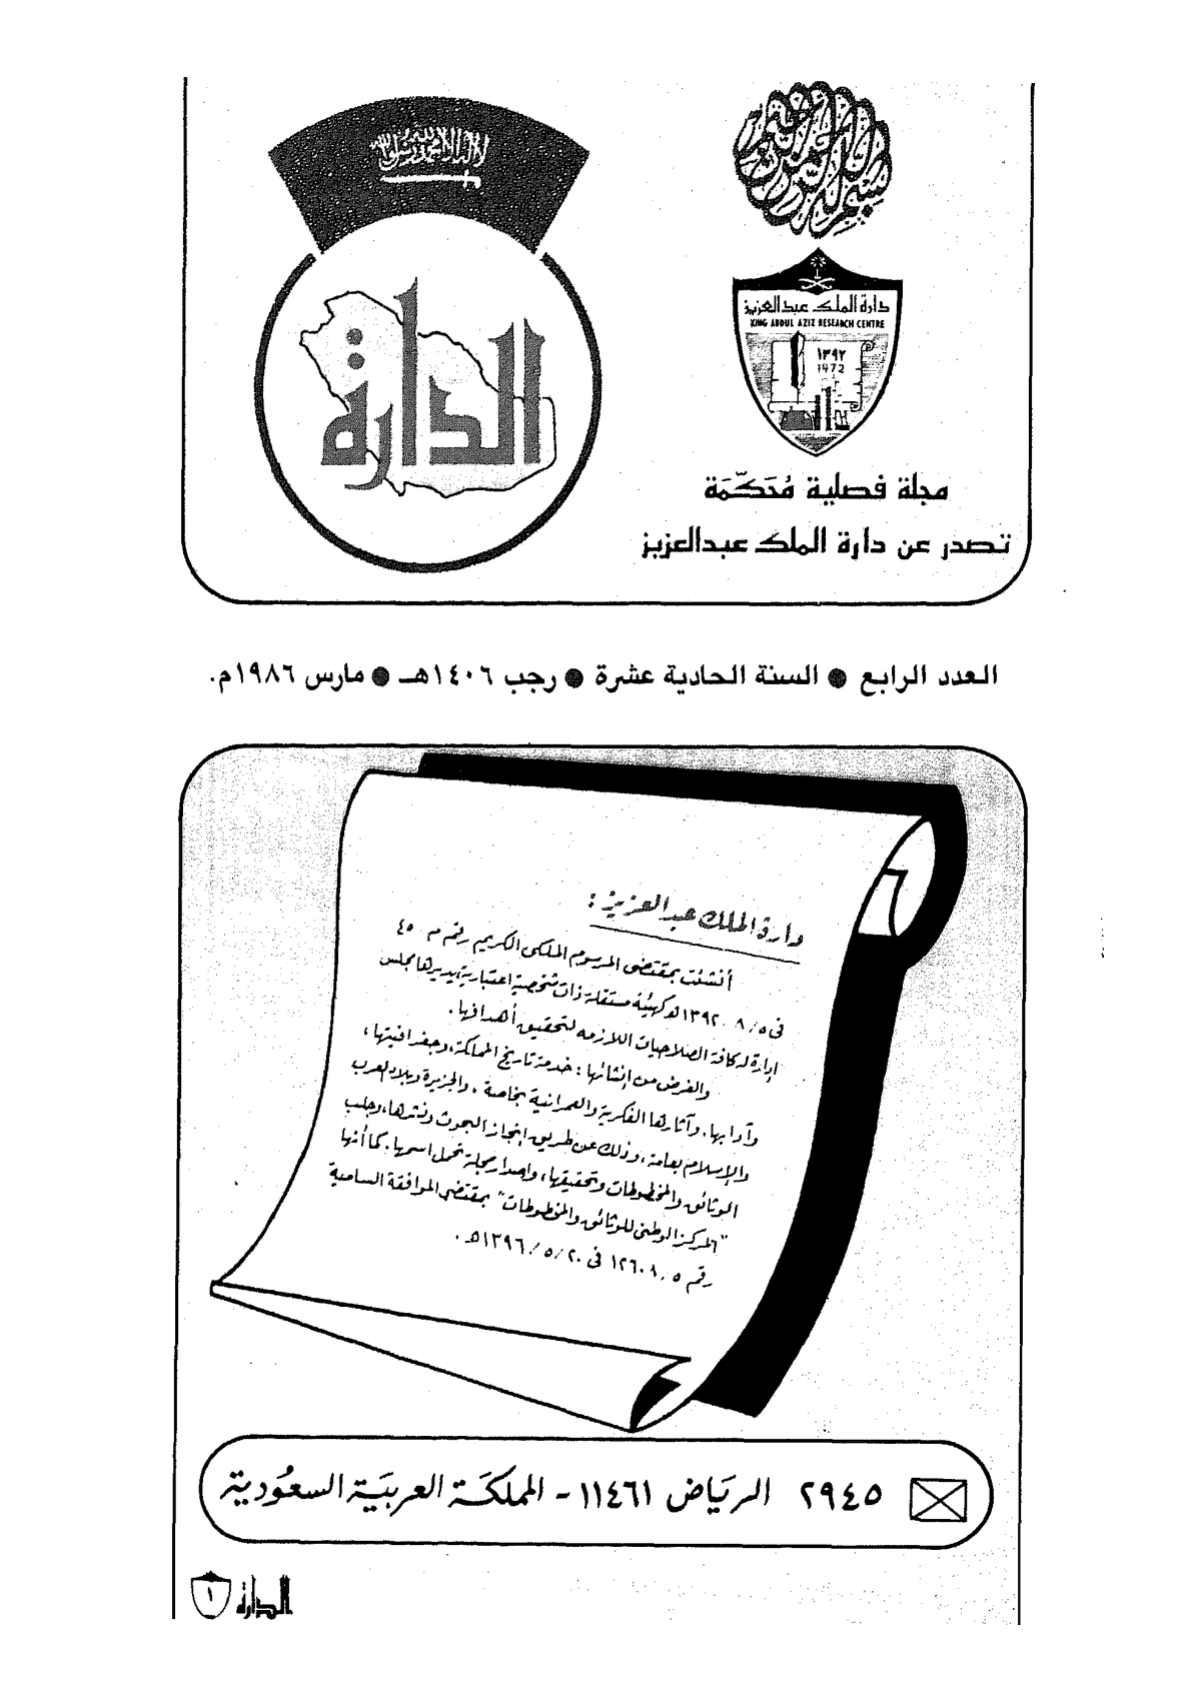 بسم الله الرحمن الرحيم
لا إله إلا الله محمد رسول الله
الدارة
دارة الملك عبدالعزيز
KING ABDUL AZIZ RESEARCH CENTRE
١٣٩٢
1972
مجلة فصلية مُحَكّمَة
تصدر عن دارة الملك عبدالعزيز
العدد الرابع ● السنة الحادية عشرة ● رجب ١٤٠٦هـ ● مارس ١٩٨٦م.
دارة الملك عبدالعزيز :
أنشئت بمقتضى المرسوم الملكى الكريم رقم م ٤٥
فى ٨/٥/ ١٣٩٢هـ كهيئة مستقلة ذات شخصية اعتبارية يديرها مجلس
إدارة له كافة الصلاحيات اللازمه لتحقيق أهدافها .
والغرض من إنشائها : خدمة تاريخ المملكة، وجغرافيتها ،
وآدابها ، وآثارها الفكرية والعمرانية بخاصة ، والجزيرة وبلاد العرب
والإسلام بعامة ، وذلك عن طريق إنجاز البحوث ونشرها، وجلب
الوثائق والمخطوطات وتحقيقها، وإصدار مجلة تحمل اسمها . كما أنها
"المركز الوطنى للوثائق والمخطوطات" بمقتضى الموافقة السامية
رقم ١٢٦٠٨/٥ فى ١٣٩٦/٥/٢٠هـ .
٢٩٤٥ الرياض ١١٤٦١ - المملكَة العربيَة السعُودية
الدارة ١